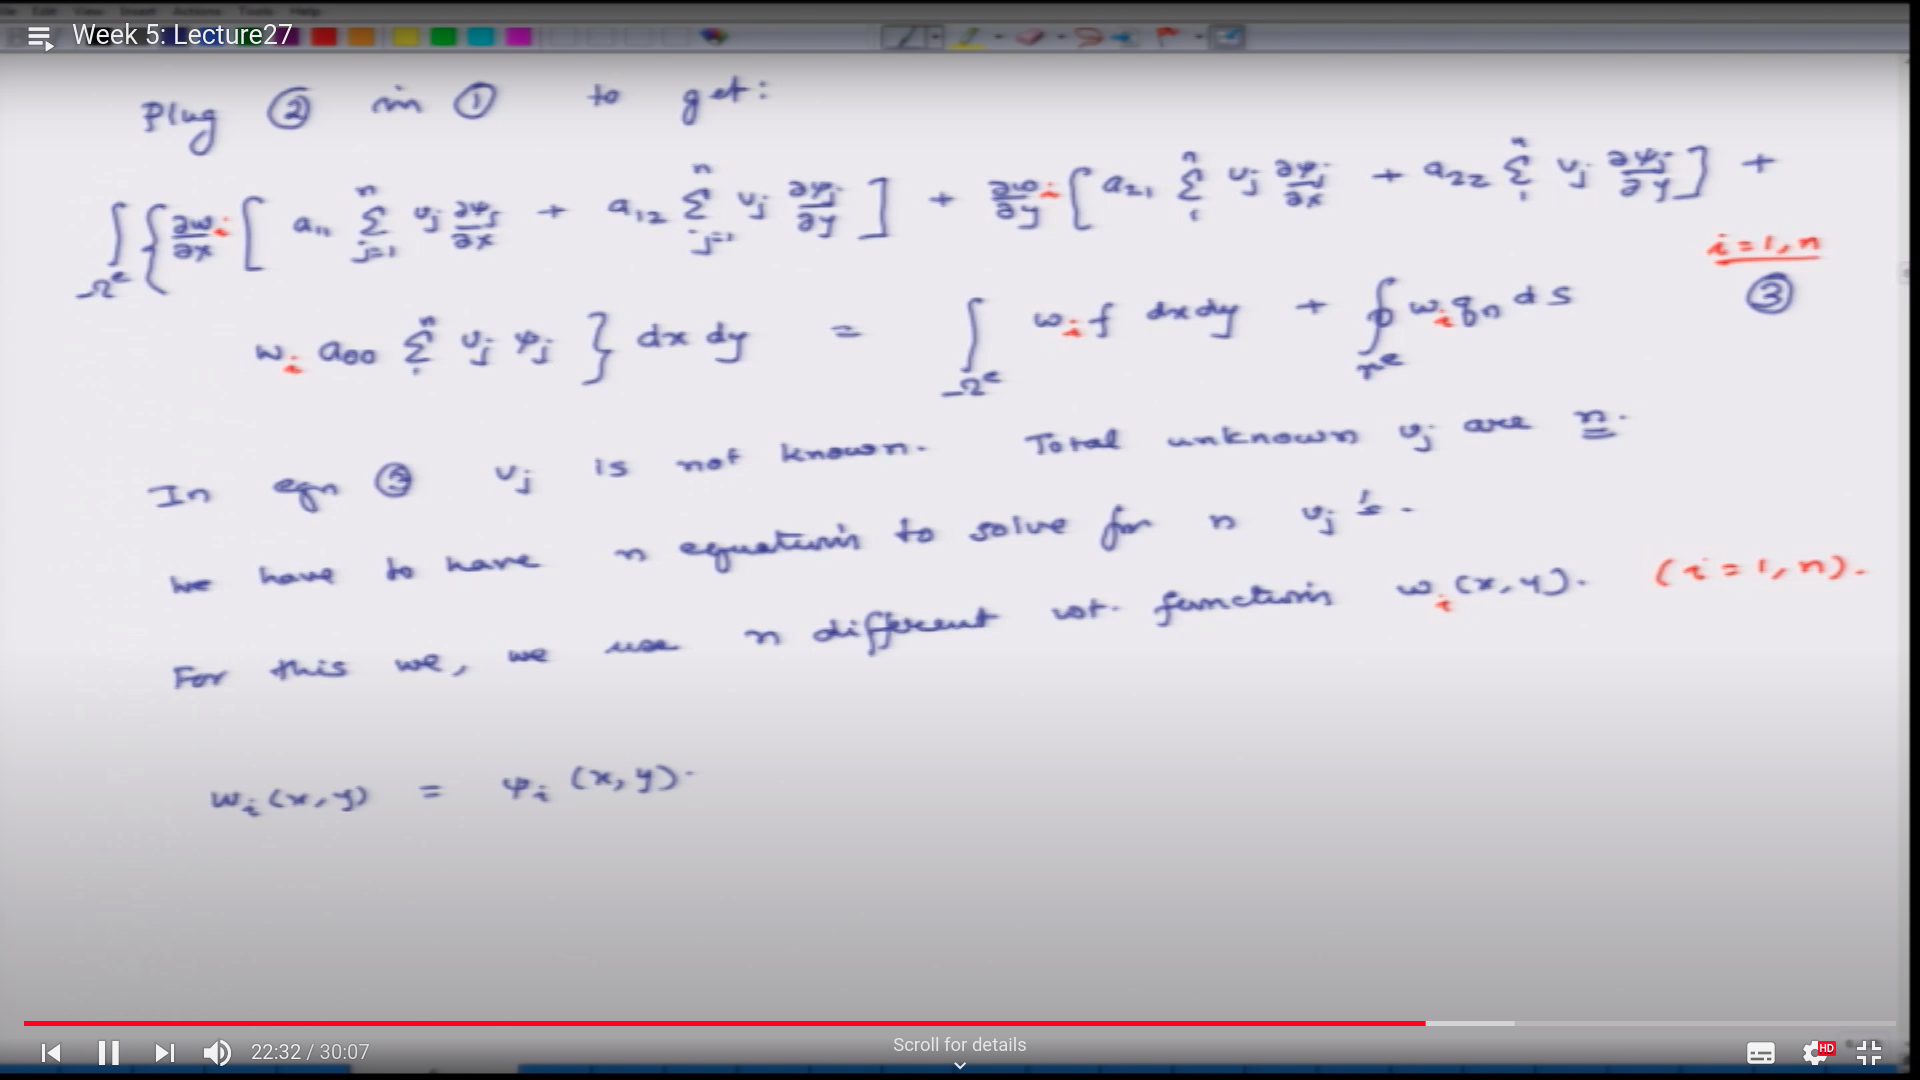 File Edit View Insert Actions Tools Help
Week 5: Lecture27
Plug ② in ① to get:
∫_Ωᵉ { ∂w_i/∂x [ a₁₁ Σ_{j=1}^n v_j ∂ψ_j/∂x + a₁₂ Σ_{j=1}^n v_j ∂ψ_j/∂y ] + ∂w_i/∂y [ a₂₁ Σ_1^n v_j ∂ψ_j/∂x + a₂₂ Σ_1^n v_j ∂ψ_j/∂y ] +
i = 1, n
w_i a₀₀ Σ_1^n v_j ψ_j } dx dy = ∫_Ωᵉ w_i f dx dy + ∮_Γᵉ w_i q_n ds ③
In eqn ③ v_j is not known. Total unknown v_j are n.
We have to have n equations to solve for n v_j's.
For this we, we use n different wt. functions w_i(x, y). (i = 1, n).
w_i(x, y) = ψ_i(x, y).
22:32 / 30:07
Scroll for details
HD